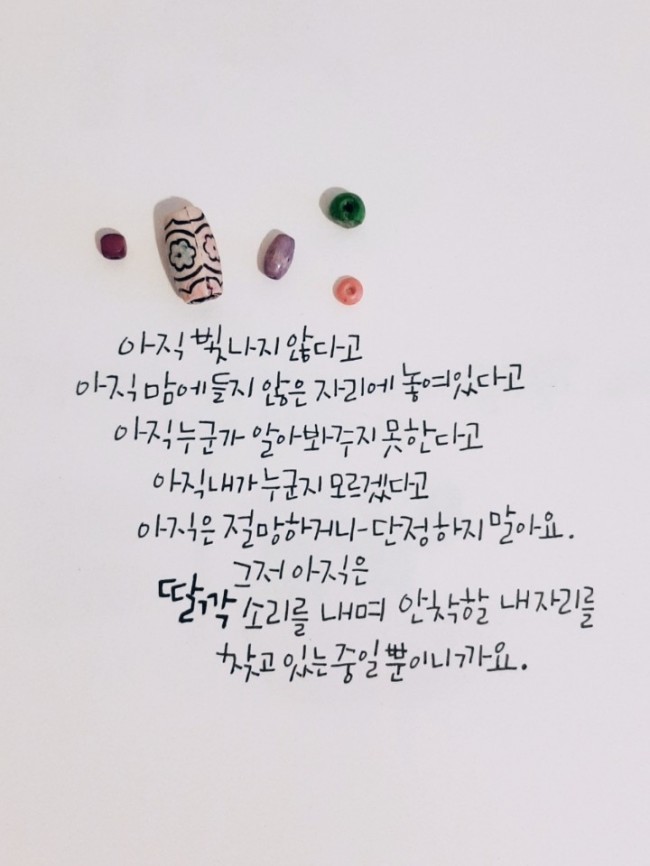 아직 빛나지 않다고
아직 맘에 들지 않은 자리에 놓여있다고
아직 누군가 알아봐주지 못한다고
아직 내가 누군지 모르겠다고
아직은 절망하거나 단정하지 말아요.
그저 아직은
딸깍 소리를 내며 안착할 내 자리를
찾고 있는 중일 뿐이니까요.